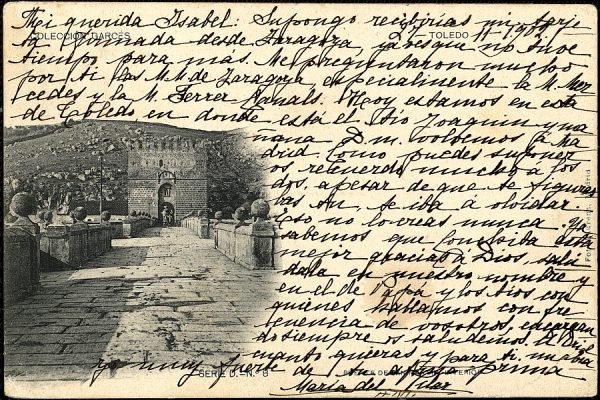 Mi querida Isabel: Supongo recibirias mi tarje
ta firmada desde Zaragoza, ya sabes que no tuve
COLECCIÓN GARCÉS
TOLEDO
tiempo para más. Me preguntaron mucho
por ti las M.M. de Zaragoza especialmente la M. Mer
cedes y la M. Ferrer Canals. Hoy estamos en esta
de Toledo en donde está el tio Joaquin y ma
ñana D. m. volvemos a Ma
drid. Como puedes suponer
os recuerdo mucho a to
dos, apesar de que te figura
bas tu, se iba a olvidar.
Eso no lo creas nunca. Ya
sabemos que Conchita esta
mejor gracias a Dios, salu
dala en nuestro nombre y
en el de Papá y los tios con
quienes hablamos con fre
cuencia de vosotros, encargan
do siempre os saludemos. A Dios
cuanto quieras y para ti un abra
zo muy fuerte de tu prima
SERIE D.-N. 8
María del Pilar